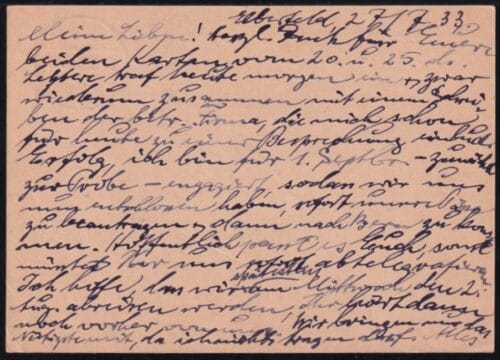 Elberfeld, 27/7 33.
Meine Lieben! Herzl. Dank für Eure
beiden Karten vom 20. u. 25. ds.
Letztere traf heute morgen ein u. zwar
wiederum zusammen mit einem Schrei-
ben der betr. Firma, die mich schon
für heute zu einer Besprechung einlud.
Erfolg, ich bin für 1. Septbr. – zunächst
zur Probe – engagiert, sodass wir uns
nun entschlossen haben, sofort
zu beantragen u. dann nach Bern zu kom-
men. Hoffentlich passt es Euch, sonst
müsstet Ihr uns abtelegrafieren.
Ich hoffe, dass wir spätestens Mittwoch den 2.
Aug. abreisen werden,
noch vorher von uns. Wir bringen nur das
Nötigste mit, da ich nichts tragen darf. Alles